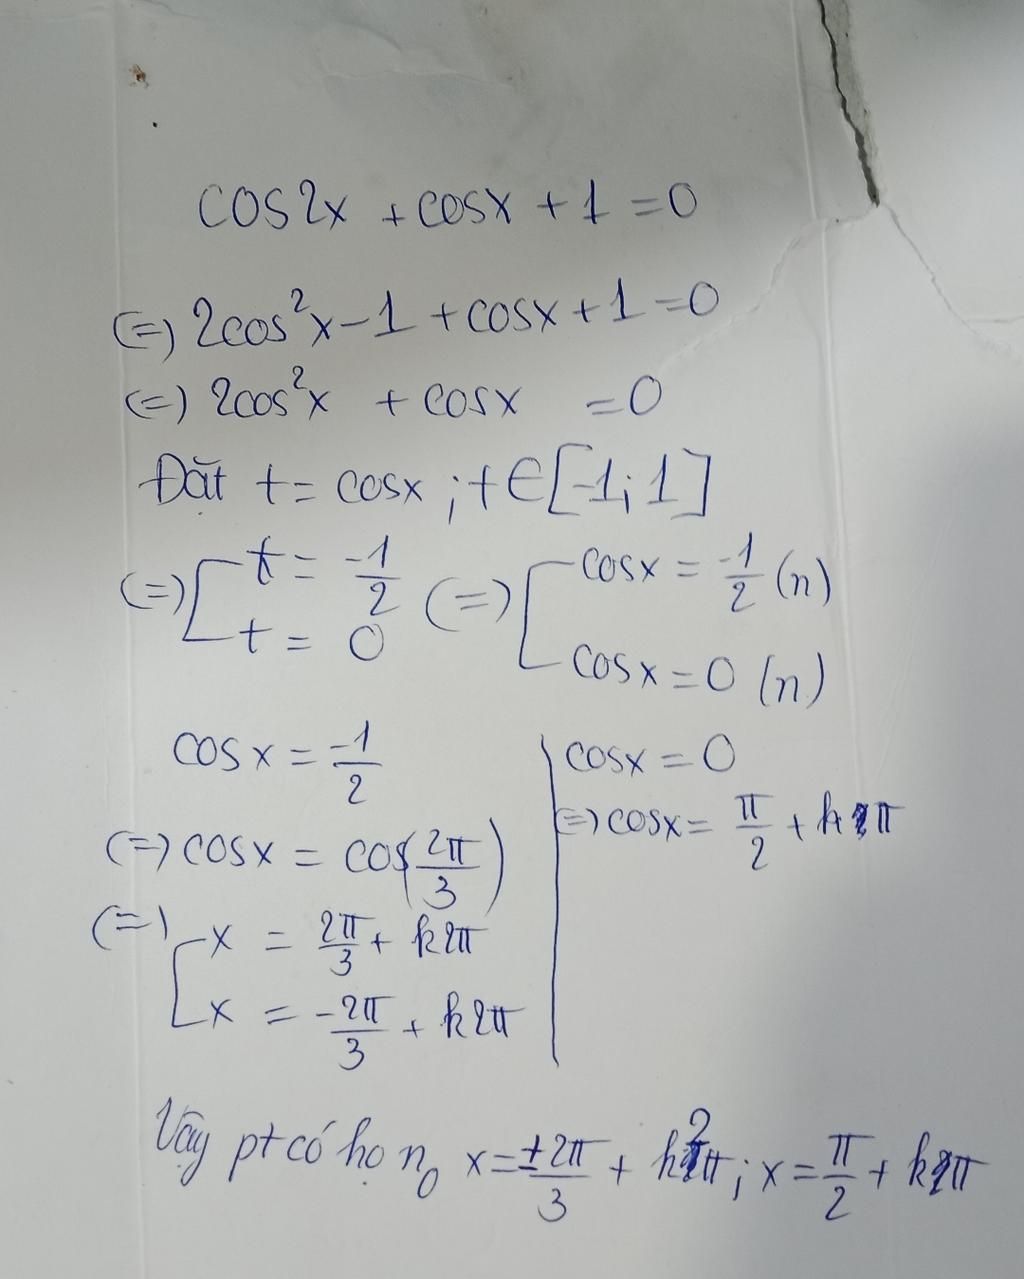 cos2x + cosx + 1 = 0
(=) 2cos²x - 1 + cosx + 1 = 0
(=) 2cos²x + cosx = 0
Đặt t = cosx ; t ∈ [-1; 1]
(=) [ t = -1/2 (=) [ cosx = -1/2 (n)
t = 0 cosx = 0 (n)
cosx = -1/2
(=) cosx = cos(2π/3)
(=) [ x = 2π/3 + k2π
x = -2π/3 + k2π
cosx = 0
(=) cosx = π/2 + kπ
Vậy pt có họ n₀ x = ±2π/3 + k2π ; x = π/2 + kπ